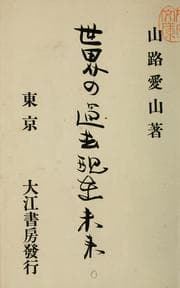 山路愛山著
世界の過去現在未来
東京
大江書房發行